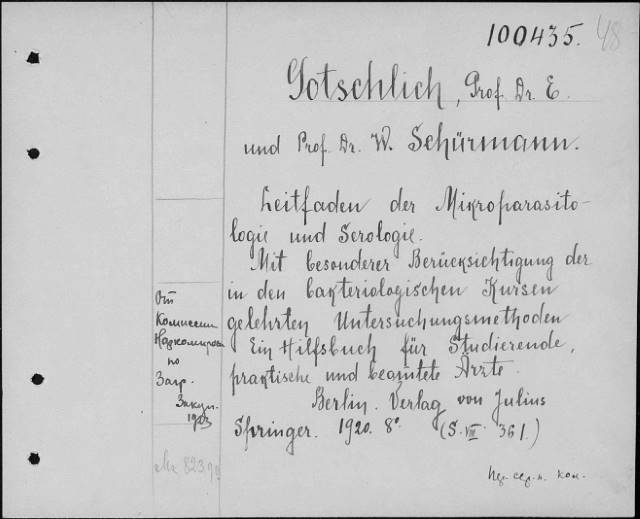 100435. 48
Gotschlich, Prof. Dr. E.
und Prof. Dr. W. Schürmann.
Leitfaden der Mikroparasito-
logie und Serologie.
Mit besonderer Berücksichtigung der
in den bakteriologischen Kursen
gelehrten Untersuchungsmethoden
Ein Hilfsbuch für Studierende,
praktische und beamtete Ärzte.
Berlin. Verlag von Julius
Springer. 1920. 8°. (S. VIII 361.)
От
Комиссии
по
Загр.
Закуп.
1923